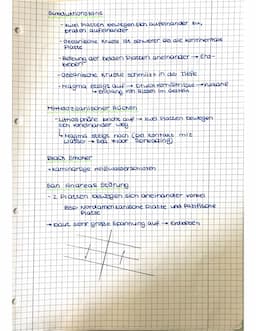 Subduktionszone
- zwei Platten bewegen sich aufeinander zu,
prallen aufeinander
- Ozeanische Kruste ist schwerer als die kontinentale
Platte
- Reibung der beiden Platten aneinander → Erd-
beben
- Ozeanische Kruste schmilzt in der Tiefe
- Magma steigt auf → Druck → Vulkane
Mittelozeanischer Rücken
- Lithosphäre bricht auf → zwei Platten bewegen
sich voneinander weg
↳ Magma steigt nach (bei Kontakt mit
Wasser →
Black Smoker
- kaminartige
San Andreas Störung
- 2 Platten bewegen sich aneinander vorbei
Bsp. Nordamerikanische Platte und Pazifische
Platte
→ baut sehr große Spannung auf → Erdbeben